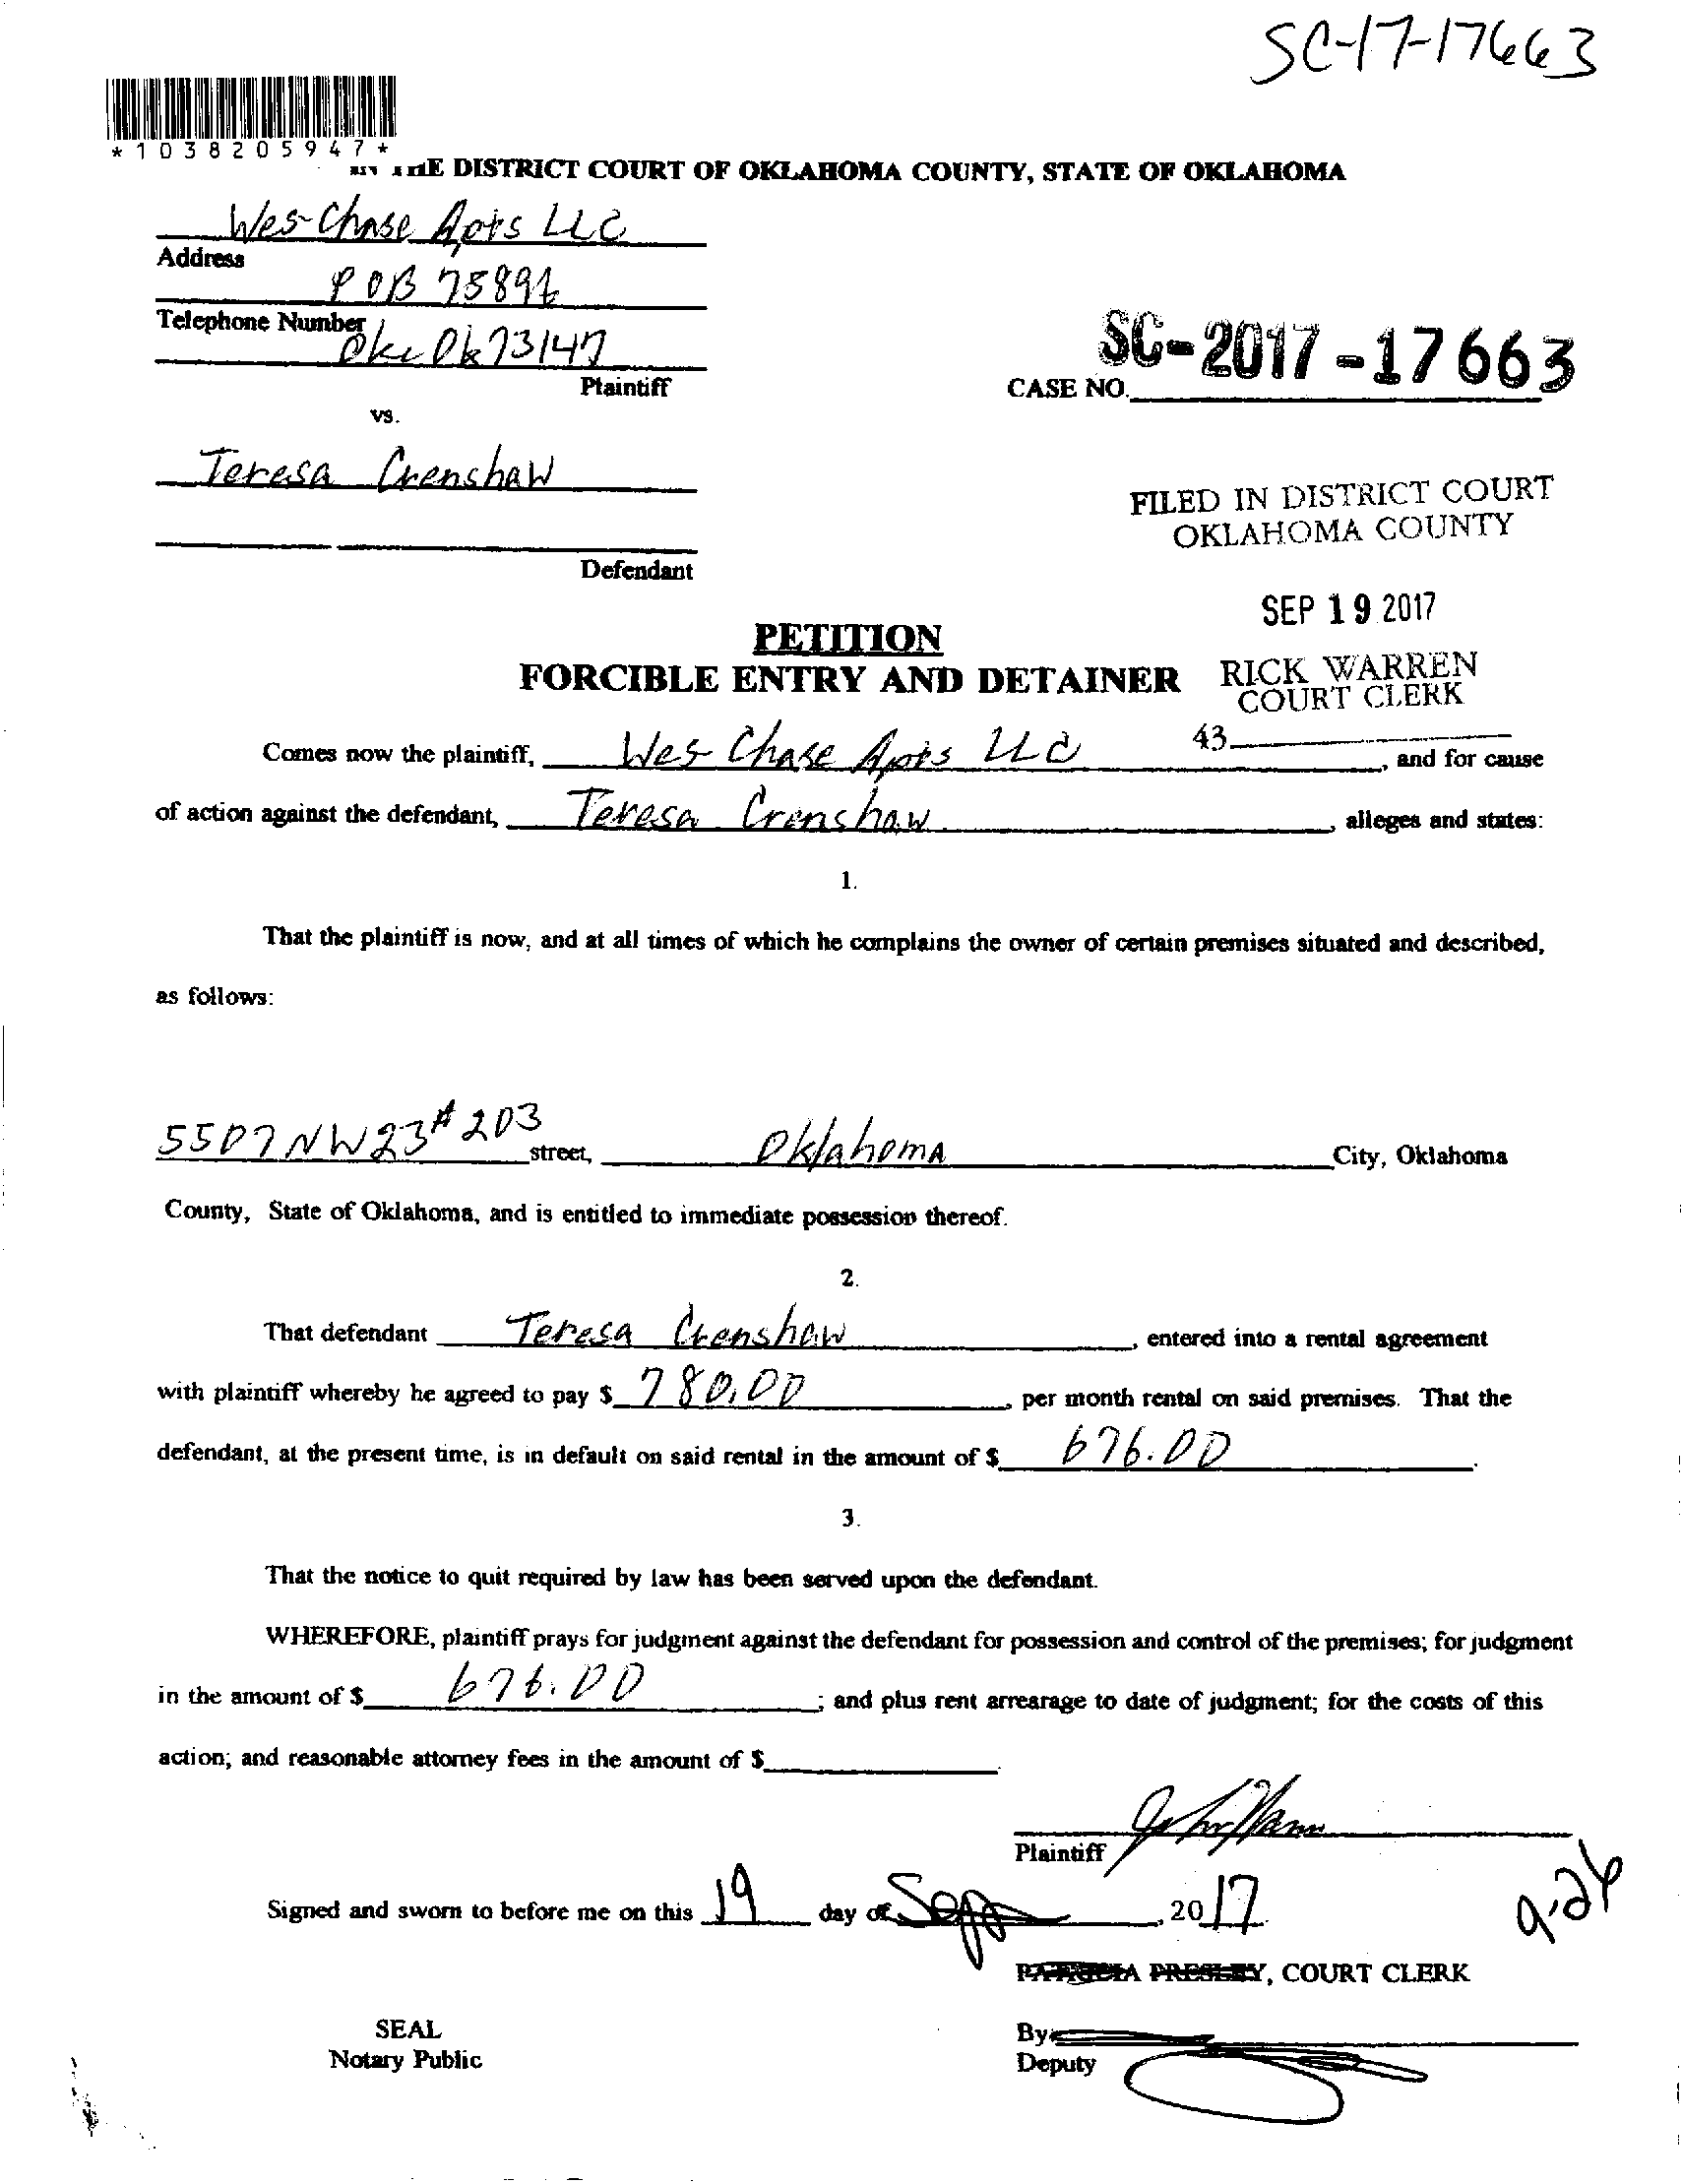 SC-17-17663
*1038205947*
THE DISTRICT COURT OF OKLAHOMA COUNTY, STATE OF OKLAHOMA
Wes Chase Apts LLC
Address
POB 75896
Telephone Number
Okc Ok 73147
Plaintiff
SC-2017-17663
CASE NO.
vs.
Teresa Crenshaw
FILED IN DISTRICT COURT
OKLAHOMA COUNTY
Defendant
SEP 19 2017
PETITION
FORCIBLE ENTRY AND DETAINER
RICK WARREN
COURT CLERK
43
Comes now the plaintiff, Wes Chase Apts LLC, and for cause
of action against the defendant, Teresa Crenshaw, alleges and states:
1.
That the plaintiff is now, and at all times of which he complains the owner of certain premises situated and described,
as follows:
5507 NW 23 # 203 street, Oklahoma City, Oklahoma
County, State of Oklahoma, and is entitled to immediate possession thereof.
2.
That defendant Teresa Crenshaw, entered into a rental agreement
with plaintiff whereby he agreed to pay $ 780.00, per month rental on said premises. That the
defendant, at the present time, is in default on said rental in the amount of $ 676.00.
3.
That the notice to quit required by law has been served upon the defendant.
WHEREFORE, plaintiff prays for judgment against the defendant for possession and control of the premises; for judgment
in the amount of $ 676.00; and plus rent arrearage to date of judgment; for the costs of this
action; and reasonable attorney fees in the amount of $
Plaintiff
Signed and sworn to before me on this 19 day of Sept, 2017
9-26
PATRICIA PRESLEY, COURT CLERK
SEAL
Notary Public
By
Deputy